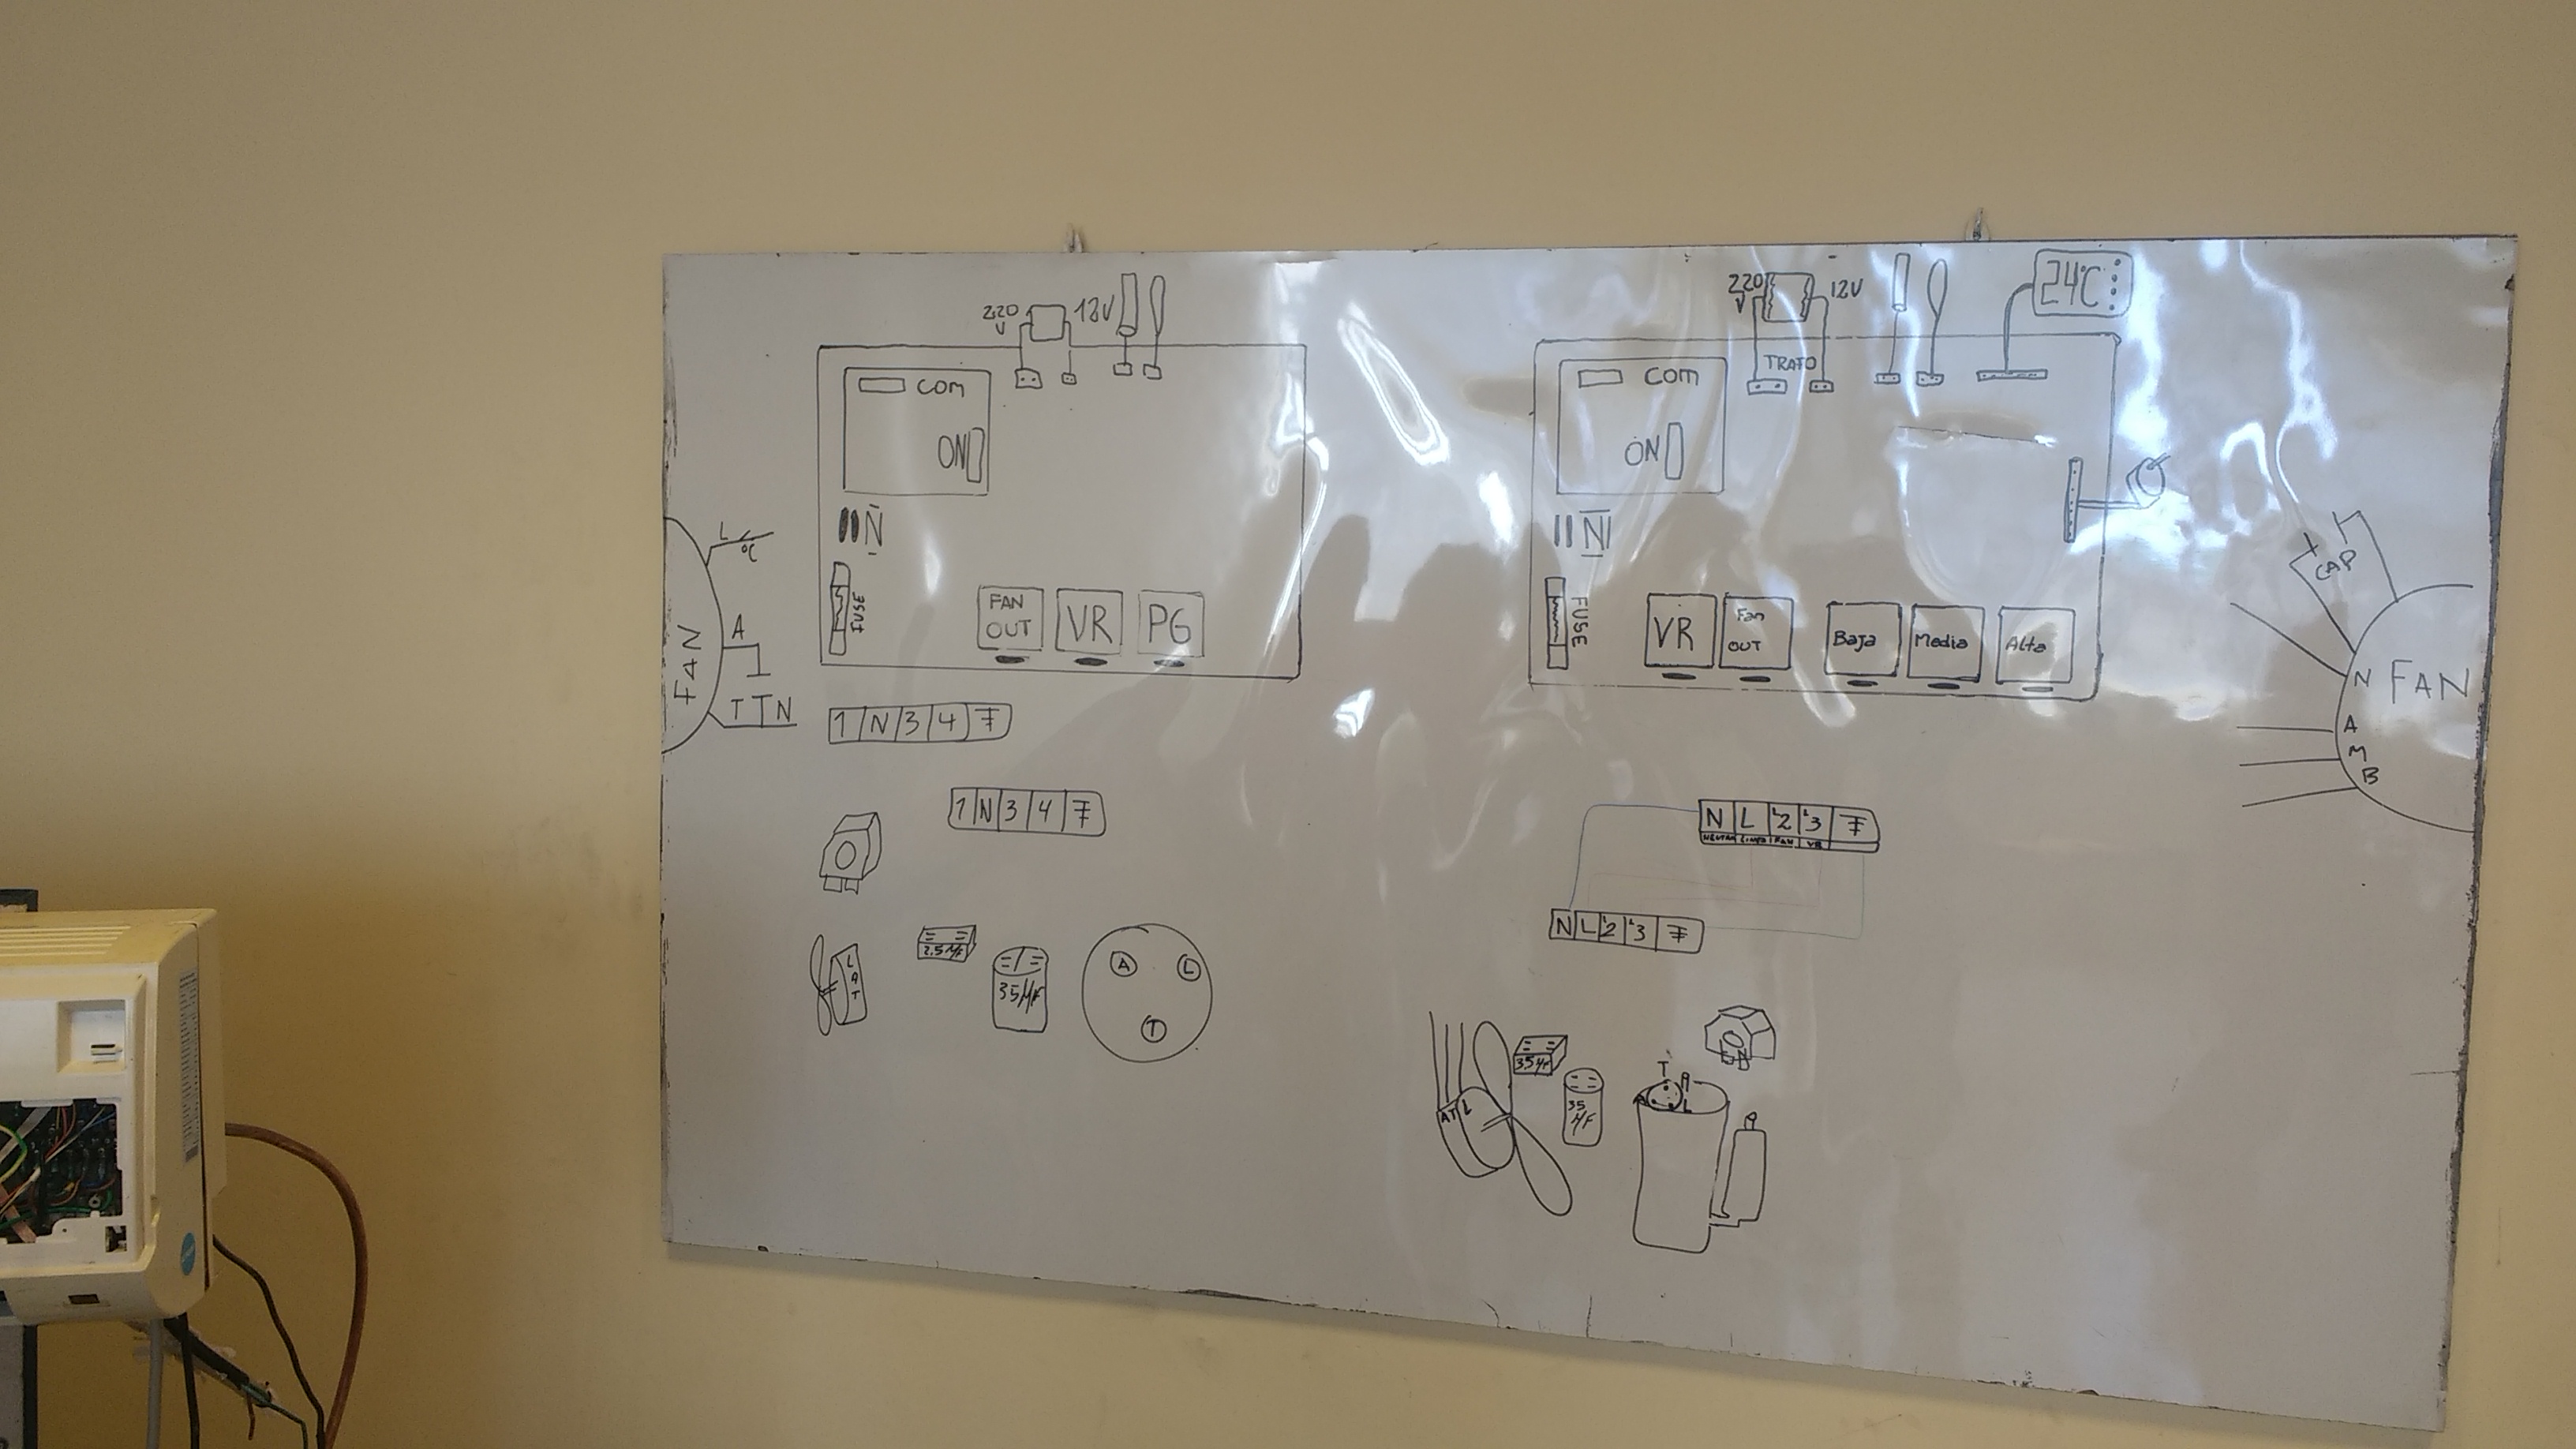 220
V
12V
COM
ON
N
FUSE
FAN
OUT
VR
PG
L
A
T
N
FAN
1 N 3 4
1 N 3 4
LAT
2.5 Mf
35 Mf
A
L
T
220
V
12V
24°C
TRAFO
COM
ON
N
FUSE
VR
Fan
OUT
Baja
Media
Alta
CAP
N
A
M
B
FAN
N L L2 L3
NEUTRO LINEA FAN VR
N L L2 L3
A T L
3.5 Mf
35
Mf
T
A
L